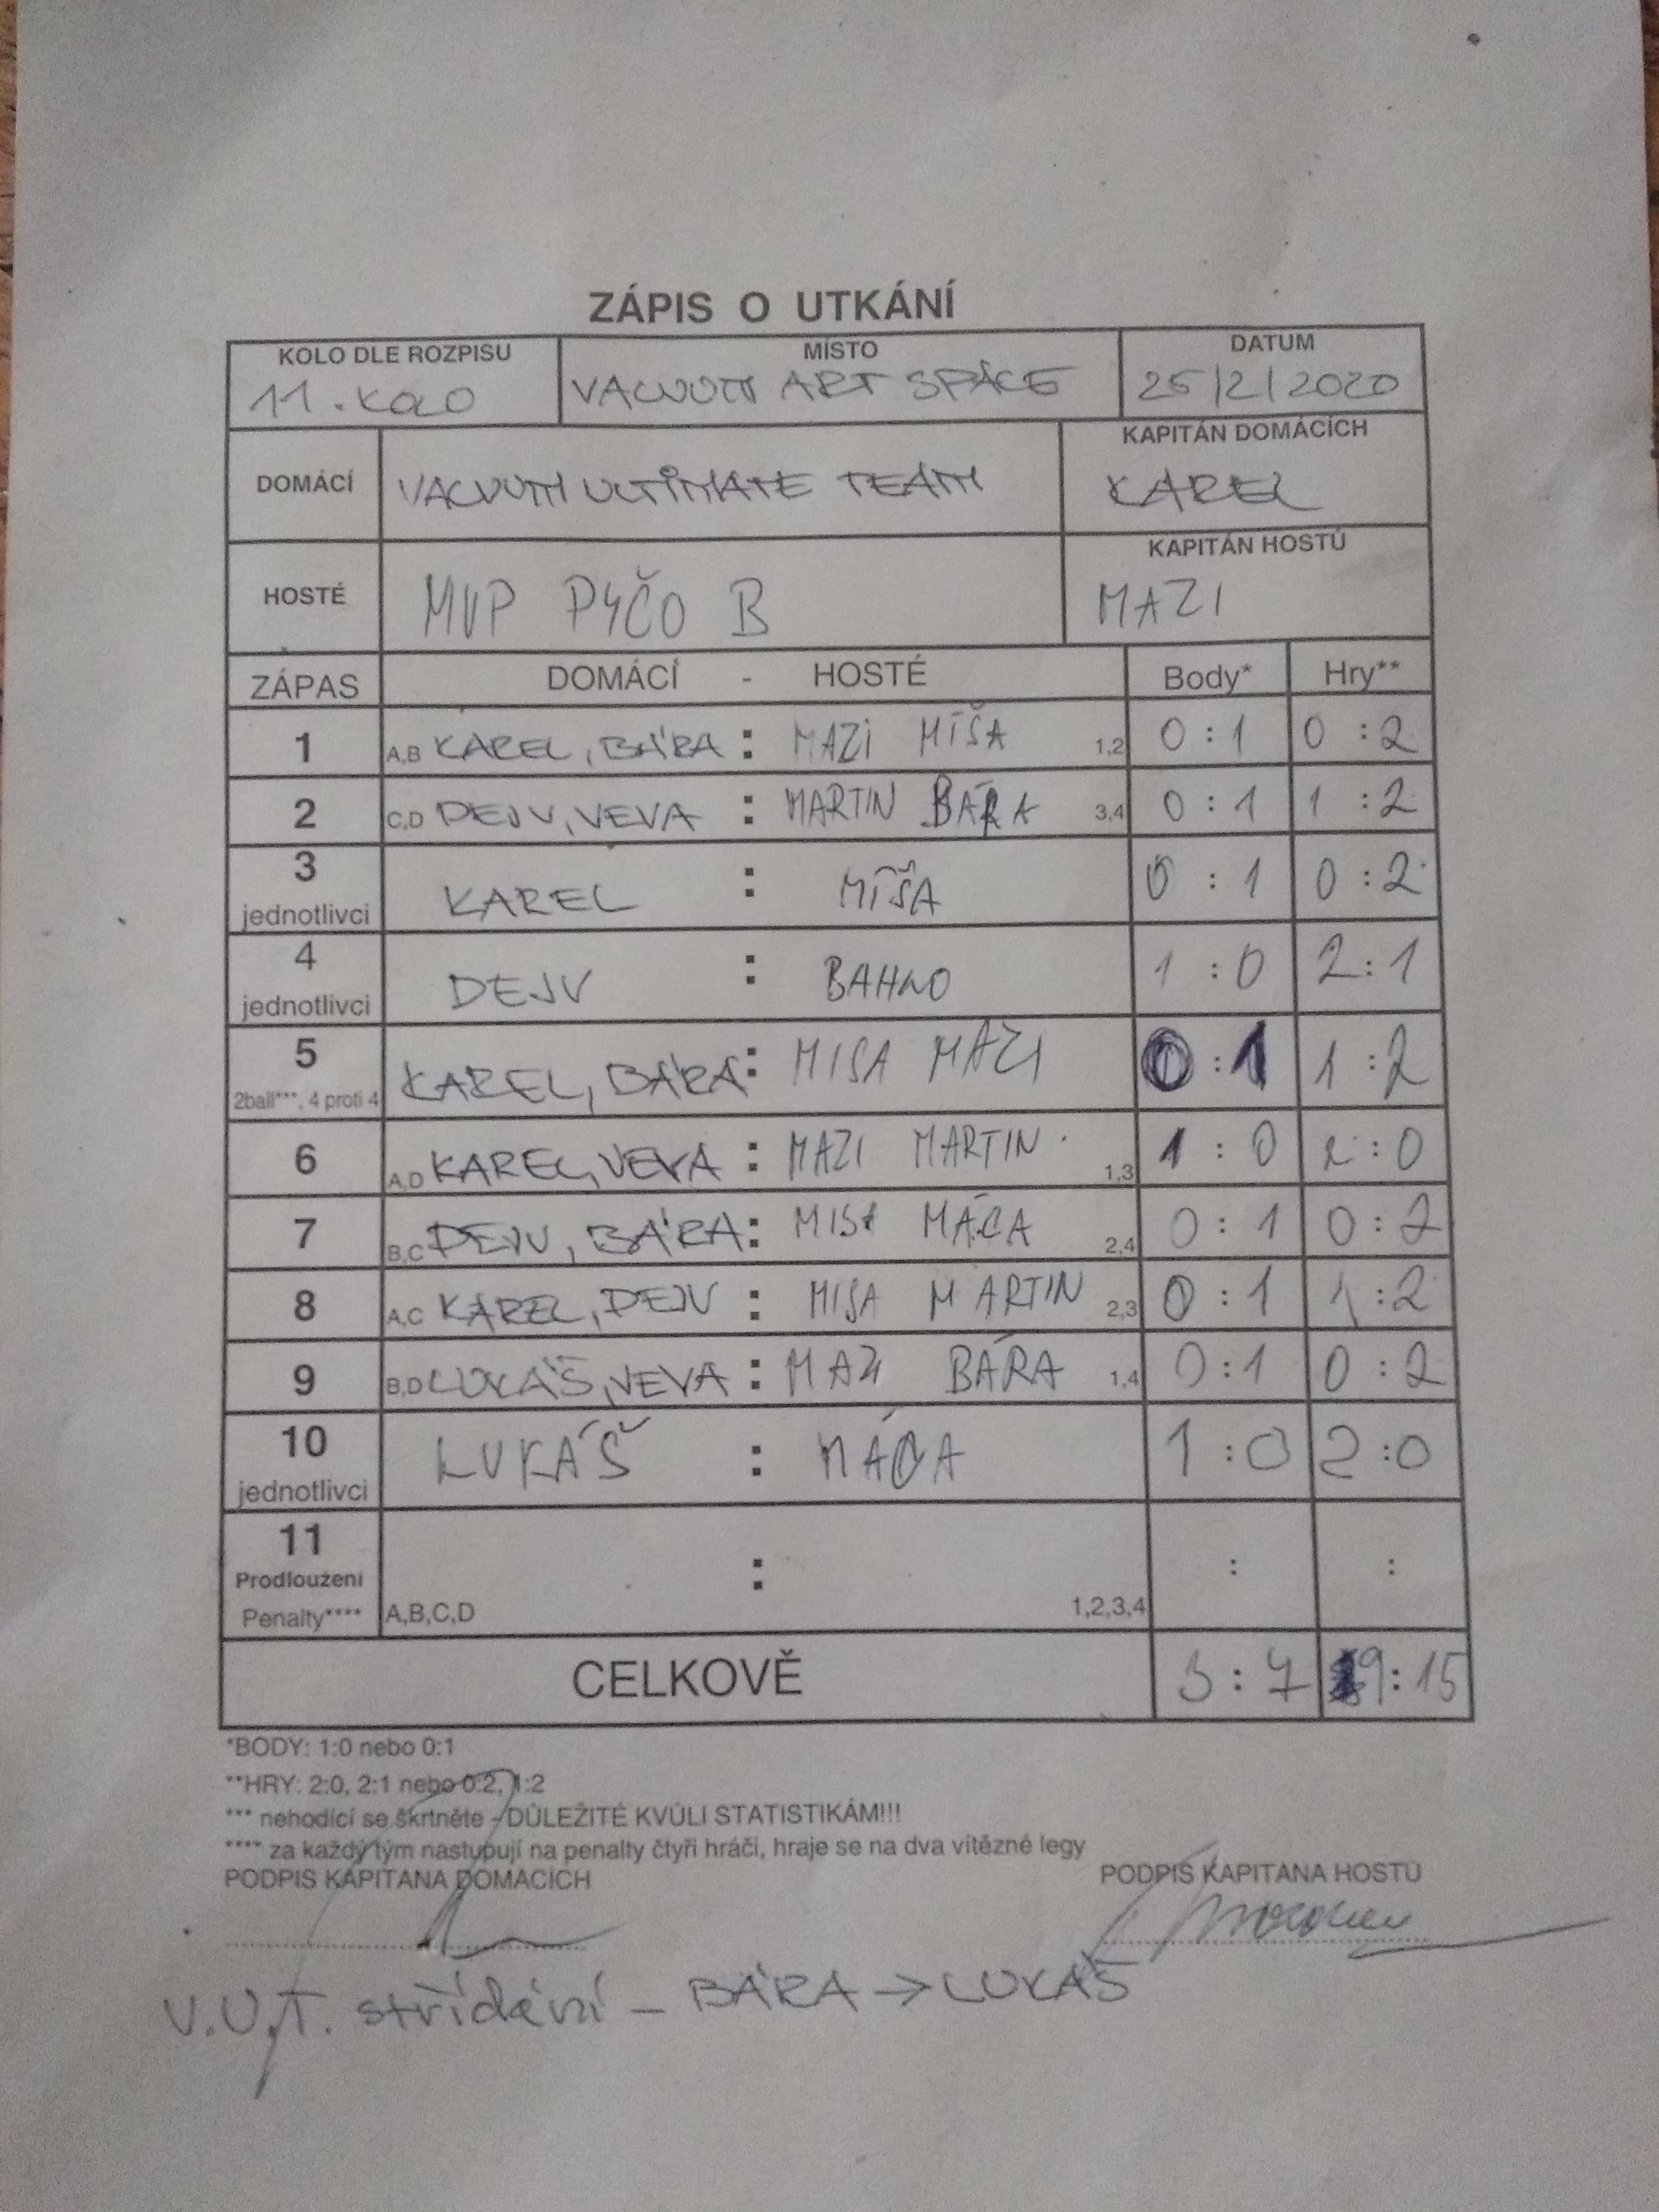 ZÁPIS O UTKÁNÍ
KOLO DLE ROZPISU MÍSTO DATUM
11. KOLO VACUUM ART SPACE 25/2/2020
KAPITÁN DOMÁCÍCH
DOMÁCÍ VACUUM ULTIMATE TEAM KAREL
KAPITÁN HOSTŮ
HOSTÉ MVP PYČO B MAZI
ZÁPAS DOMÁCÍ - HOSTÉ Body* Hry**
1 A,B KAREL, BÁRA : MAZI MÍŠA 1,2 0:1 0:2
2 C,D DEJV, VEVA : MARTIN BÁRA 3,4 0:1 1:2
3 jednotlivci KAREL : MÍŠA 0:1 0:2
4 jednotlivci DEJV : BAHNO 1:0 2:1
5 2ball***, 4 proti 4 KAREL, BÁRA : MISA MAZI 0:1 1:2
6 A,D KAREL, VEVA : MAZI MARTIN 1,3 1:0 2:0
7 B,C DEJV, BÁRA : MISA MÁCA 2,4 0:1 0:2
8 A,C KAREL, DEJV : MISA MARTIN 2,3 0:1 1:2
9 B,D LUKÁŠ, VEVA : MAZI BÁRA 1,4 0:1 0:2
10 jednotlivci LUKÁŠ : MÁCA 1:0 2:0
11 Prodloužení : : :
Penalty**** A,B,C,D 1,2,3,4
CELKOVĚ 3:7 9:15
*BODY: 1:0 nebo 0:1
**HRY: 2:0, 2:1 nebo 0:2, 1:2
*** nehodící se škrtněte - DŮLEŽITÉ KVŮLI STATISTIKÁM!!!
**** za každý tým nastupují na penalty čtyři hráči, hraje se na dva vítězné legy
PODPIS KAPITÁNA DOMÁCÍCH PODPIS KAPITÁNA HOSTŮ
V.U.T. střídání - BÁRA → LUKÁŠ